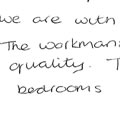 we are with
The workmans
quality. T
bedrooms